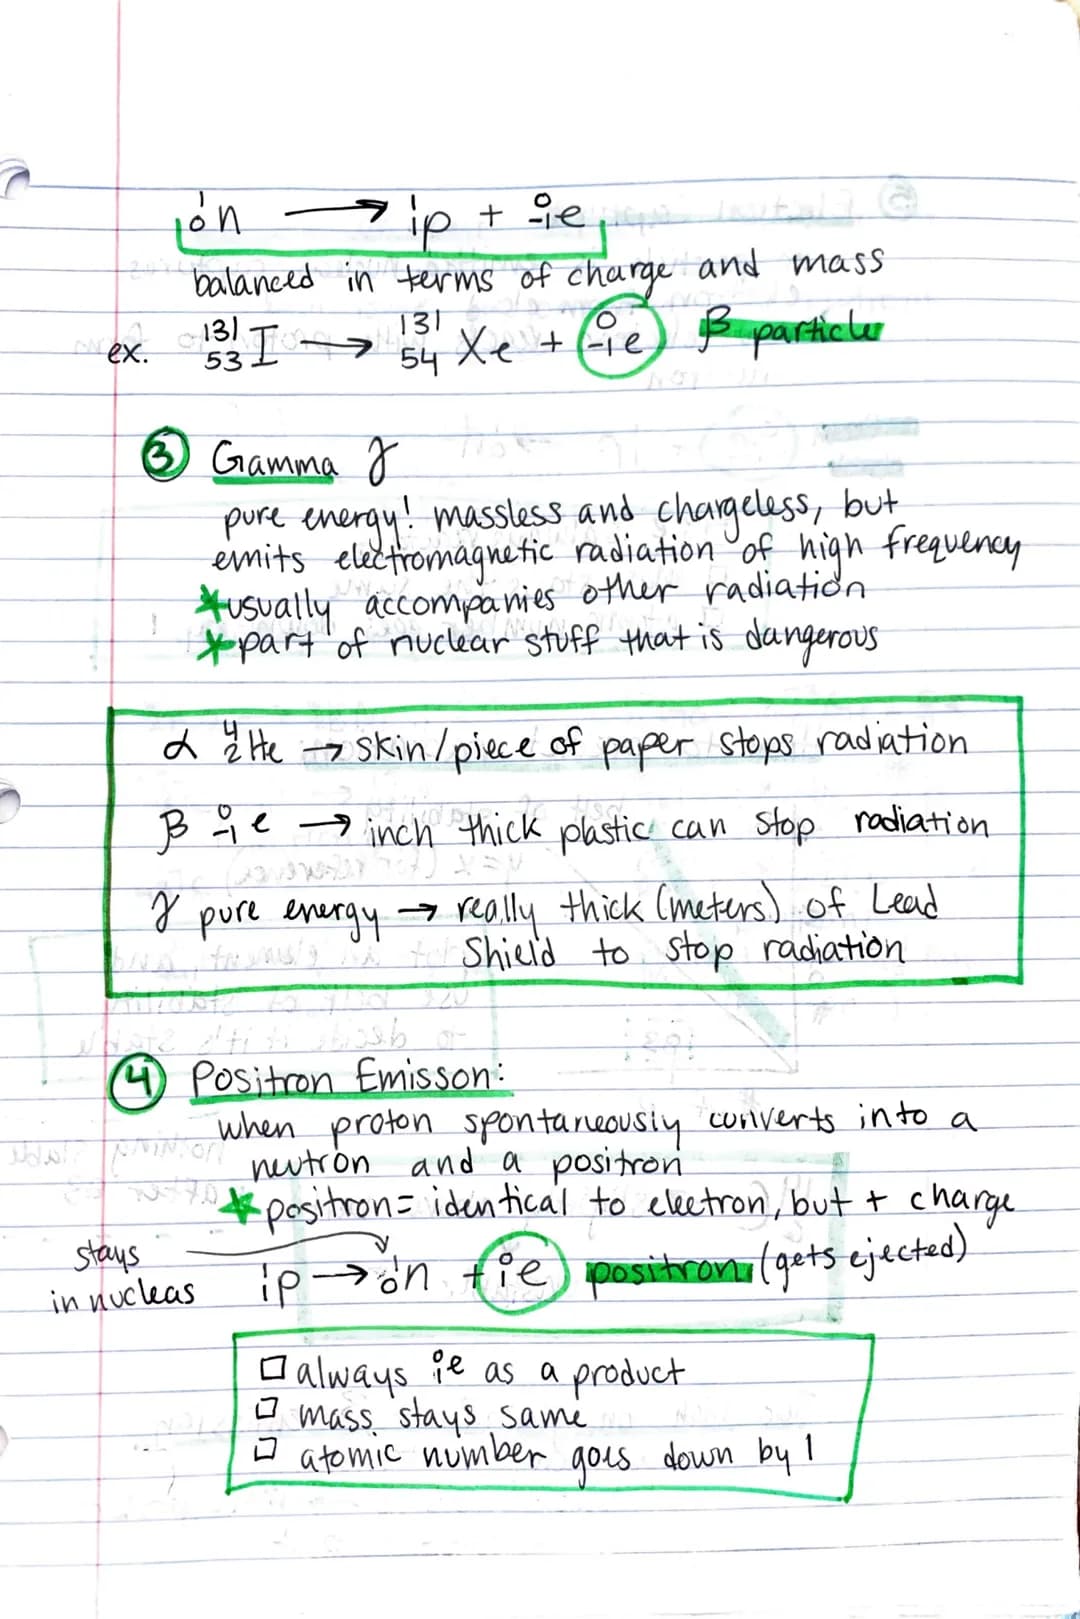 ¹₀n → ¹₁p + ⁰₋₁e
balanced in terms of charge and mass
ex. ¹³¹₅₃I → ¹³¹₅₄Xe + ⁰₋₁e β particle
③ Gamma γ
pure energy! massless and chargeless, but
emits electromagnetic radiation of high frequency
*usually accompanies other radiation
*part of nuclear stuff that is dangerous
α ⁴₂He → skin/piece of paper stops radiation
β ⁰₋₁e → inch thick plastic can stop radiation
γ pure energy → really thick (meters) of Lead
Shield to stop radiation
④ Positron Emisson:
when proton spontaneously converts into a
neutron and a positron
*positron = identical to electron, but + charge
stays
in nucleas
¹₁p → ¹₀n + ⁰₁e positron (gets ejected)
□ always ⁰₁e as a product
□ mass stays same
□ atomic number goes down by 1